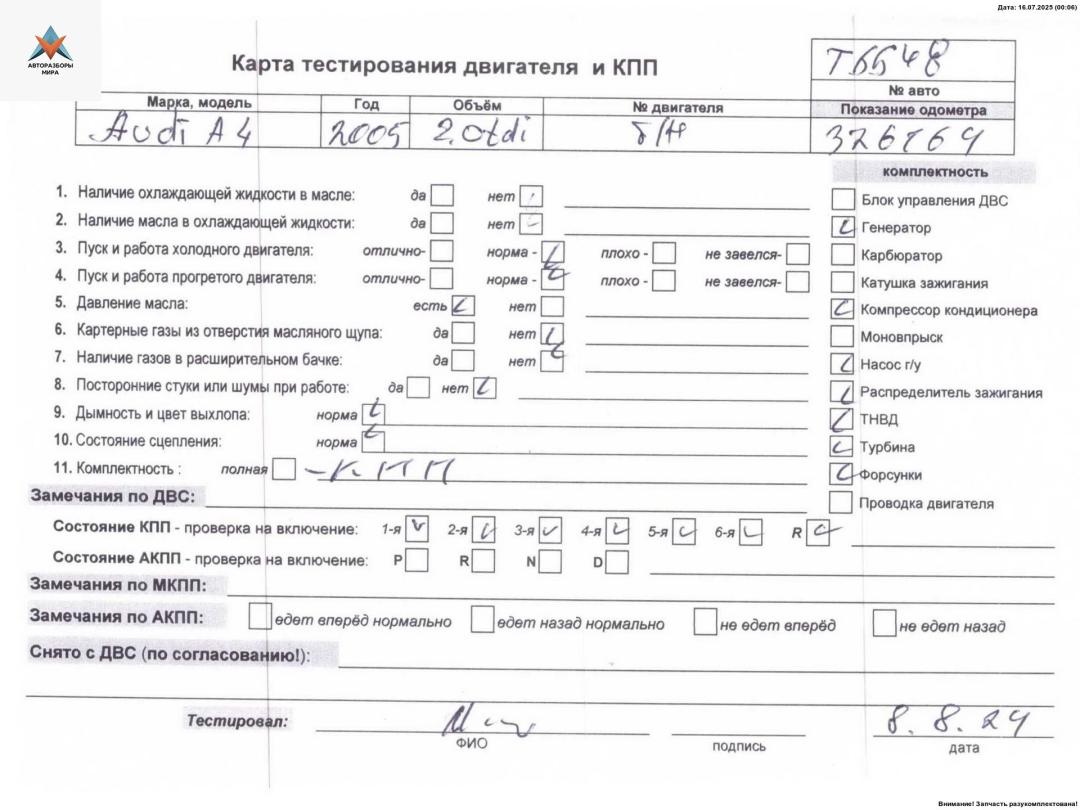 Дата: 16.07.2025 (00:06)
АВТОРАЗБОРЫ
МИРА
Карта тестирования двигателя и КПП
Т5548
№ авто
Марка, модель Год Объём № двигателя Показание одометра
Audi A4 2005 2.0tdi б/н 326769
комплектность
1. Наличие охлаждающей жидкости в масле: да нет
Блок управления ДВС
2. Наличие масла в охлаждающей жидкости: да нет
Генератор
3. Пуск и работа холодного двигателя: отлично- норма - плохо - не завелся-
Карбюратор
4. Пуск и работа прогретого двигателя: отлично- норма - плохо - не завелся-
Катушка зажигания
5. Давление масла: есть нет
Компрессор кондиционера
6. Картерные газы из отверстия масляного щупа: да нет
Моновпрыск
7. Наличие газов в расширительном бачке: да нет
Насос г/у
8. Посторонние стуки или шумы при работе: да нет
Распределитель зажигания
9. Дымность и цвет выхлопа: норма
ТНВД
10. Состояние сцепления: норма
Турбина
11. Комплектность : полная - КПП
Форсунки
Замечания по ДВС:
Проводка двигателя
Состояние КПП - проверка на включение: 1-я 2-я 3-я 4-я 5-я 6-я R
Состояние АКПП - проверка на включение: P R N D
Замечания по МКПП:
Замечания по АКПП: едет вперёд нормально едет назад нормально не едет вперёд не едет назад
Снято с ДВС (по согласованию!):
Тестировал: 8.8.24
ФИО подпись дата
Внимание! Запчасть разукомплектована!